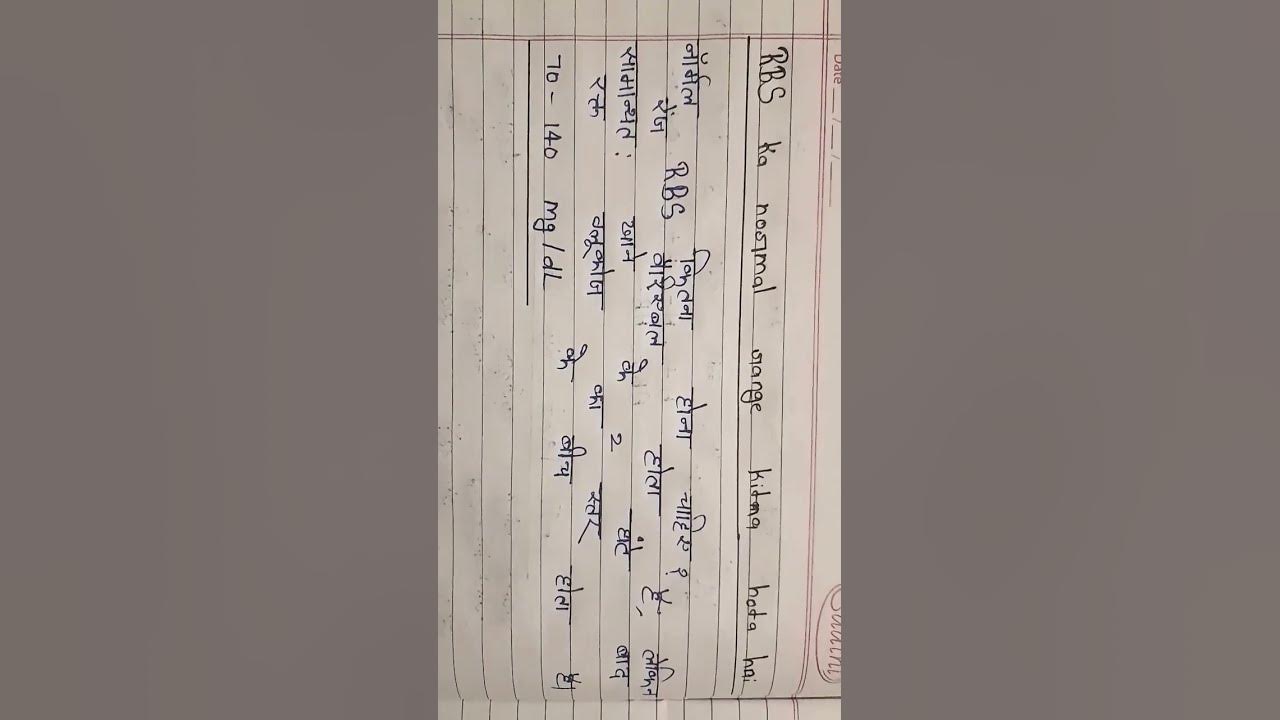 Date
RBS ka normal range kitna hota hai
नॉर्मल RBS कितना होना चाहिए?
रेंज वेरिएबल होता है, लेकिन
सामान्यत: खाने के 2 घंटे बाद
रक्त ग्लूकोज का स्तर
70 - 140 mg/dL के बीच होता है।